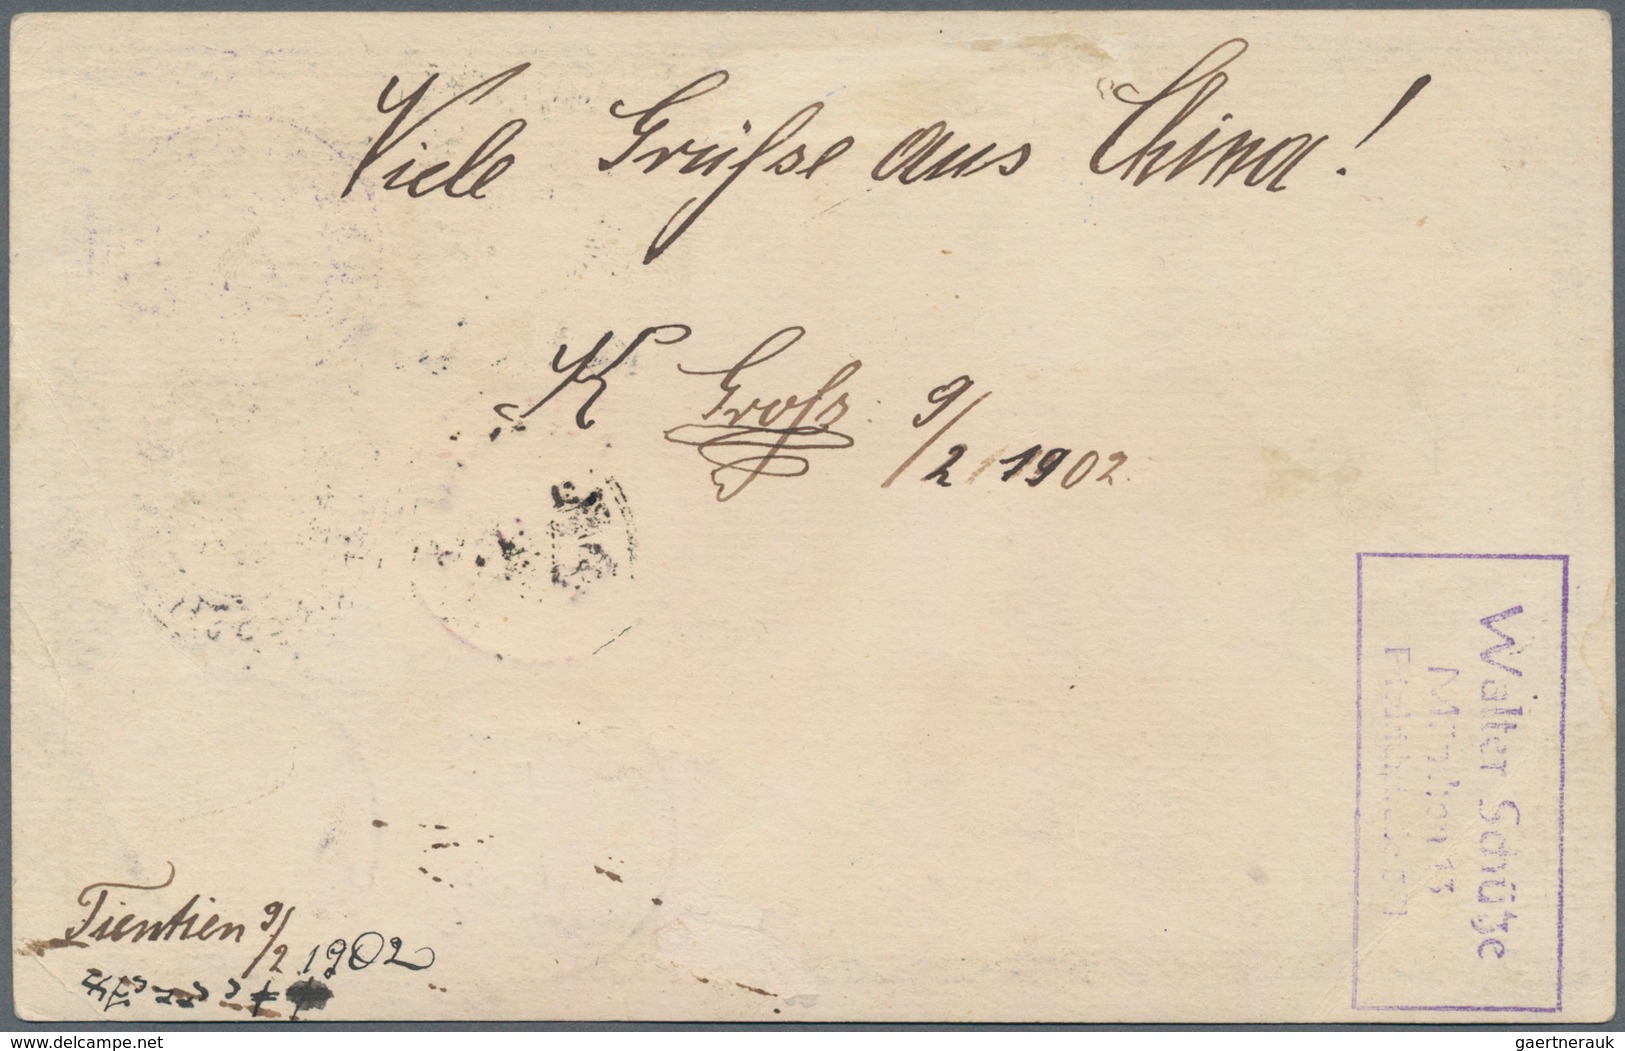 Viele Grüße aus China!
K Groß. 9/2 1902.
Tientien 9/2. 1902
Walter Schütze
München 13
delcampe.net
gaertnerauk